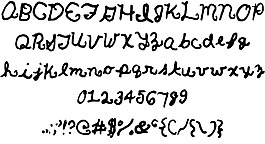 ABCDEFGHIJKLMNOP
QRSTUVWXYZabcdefg
hijklmnopqrstuvwxyz
0123456789
.,:;'!?"@#$%&*{(/\)}